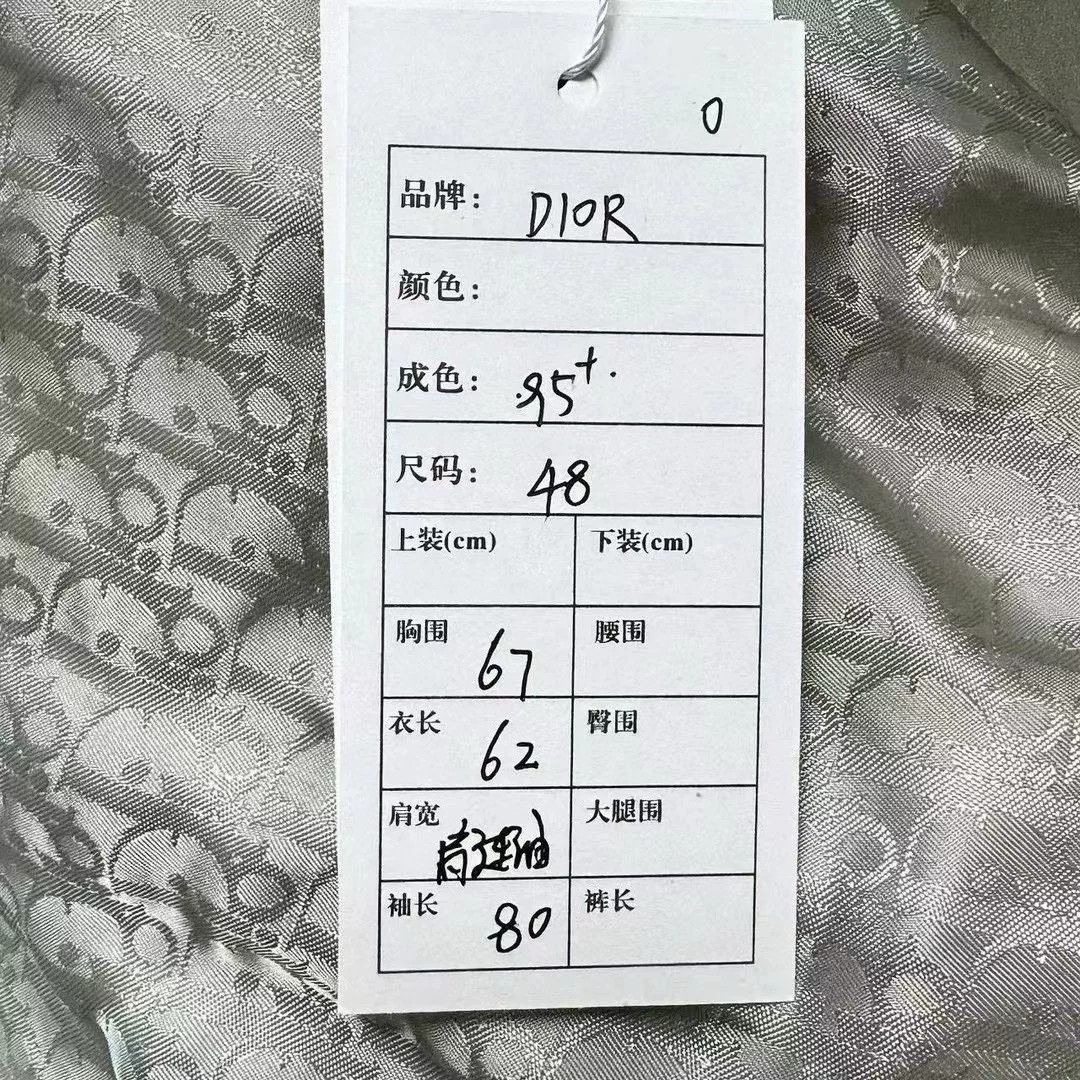 0
品牌: DIOR
颜色:
成色: 95+
尺码: 48
上装(cm) 下装(cm)
胸围 67 腰围
衣长 62 臀围
肩宽 肩连袖 大腿围
袖长 80 裤长